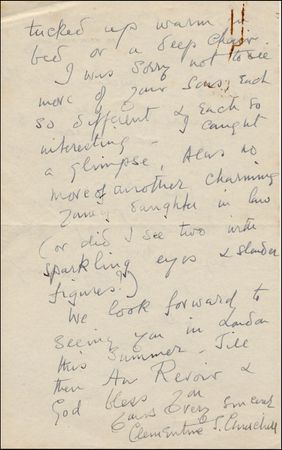 tucked up warm in
bed or a deep chair.
I was sorry not to see
more of your sons, each
so different & each so
interesting - I caught
a glimpse, Alas no
more of another charming
young daughter in law
(or did I see two with
sparkling eyes & slender
figures?)
We look forward to
seeing you in London
this summer - Till
then Au Revoir &
God bless you
Yours Very Sincerely
Clementine S. Churchill